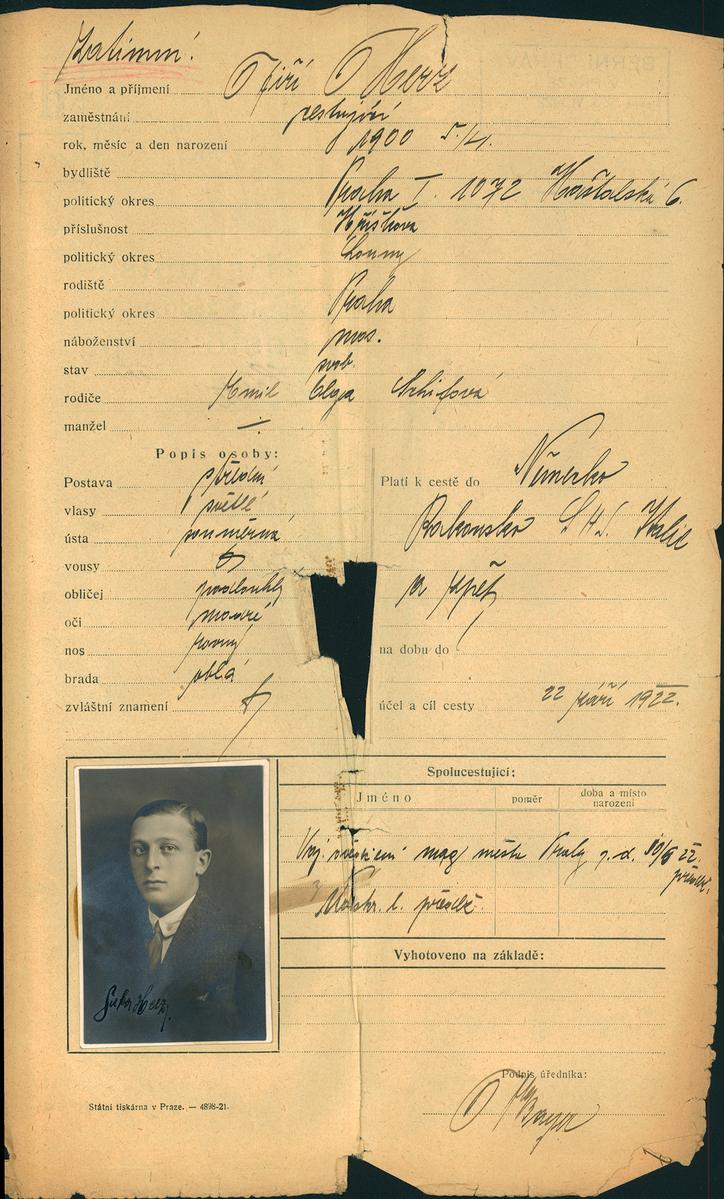 Jméno a příjmení Jiří Herz
zaměstnání
rok, měsíc a den narození 1900 5/4.
bydliště
politický okres Praha I. 1072 Haštalská 6.
příslušnost Hříškova
politický okres Louny
rodiště
politický okres Praha
náboženství mos.
stav svob.
rodiče Emil Olga
manžel —
Popis osoby:
Postava střední
vlasy světlé
ústa souměrná
vousy
obličej podlouhlý
oči modré
nos rovný
brada oblá
zvláštní znamení
Platí k cestě do Německo
Rakousko S.H.S. Italie
a zpět
na dobu do
účel a cíl cesty 22 září 1922.
Spolucestující:
Jméno poměr doba a místo narození
mag města Prahy
předlož.
l. předlž.
Vyhotoveno na základě:
Podpis úředníka:
Bayer
Herz
Státní tiskárna v Praze. — 4898-21.